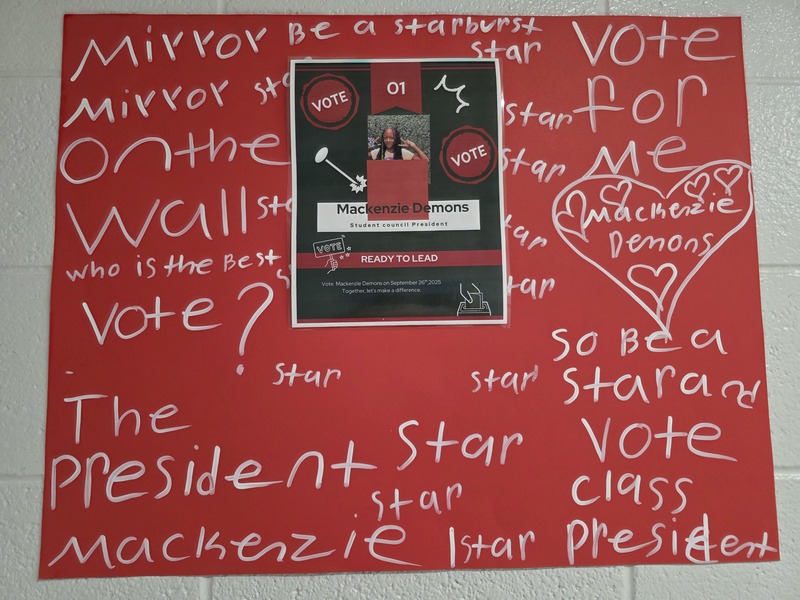 Mirror Be a starburst
star
Mirror sta
On the
Wall sta
who is the Best
Vote?
star
The
president star
star
Mackenzie
star
star
star
star
star
star
VOTE
01
VOTE
Mackenzie Demons
Student council President
VOTE
READY TO LEAD
Vote Mackenzie Demons on September 26th, 2025
Together, let's make a difference.
Vote
for
Me
Mackenzie
Demons
so Be a
star and
Vote
class
president